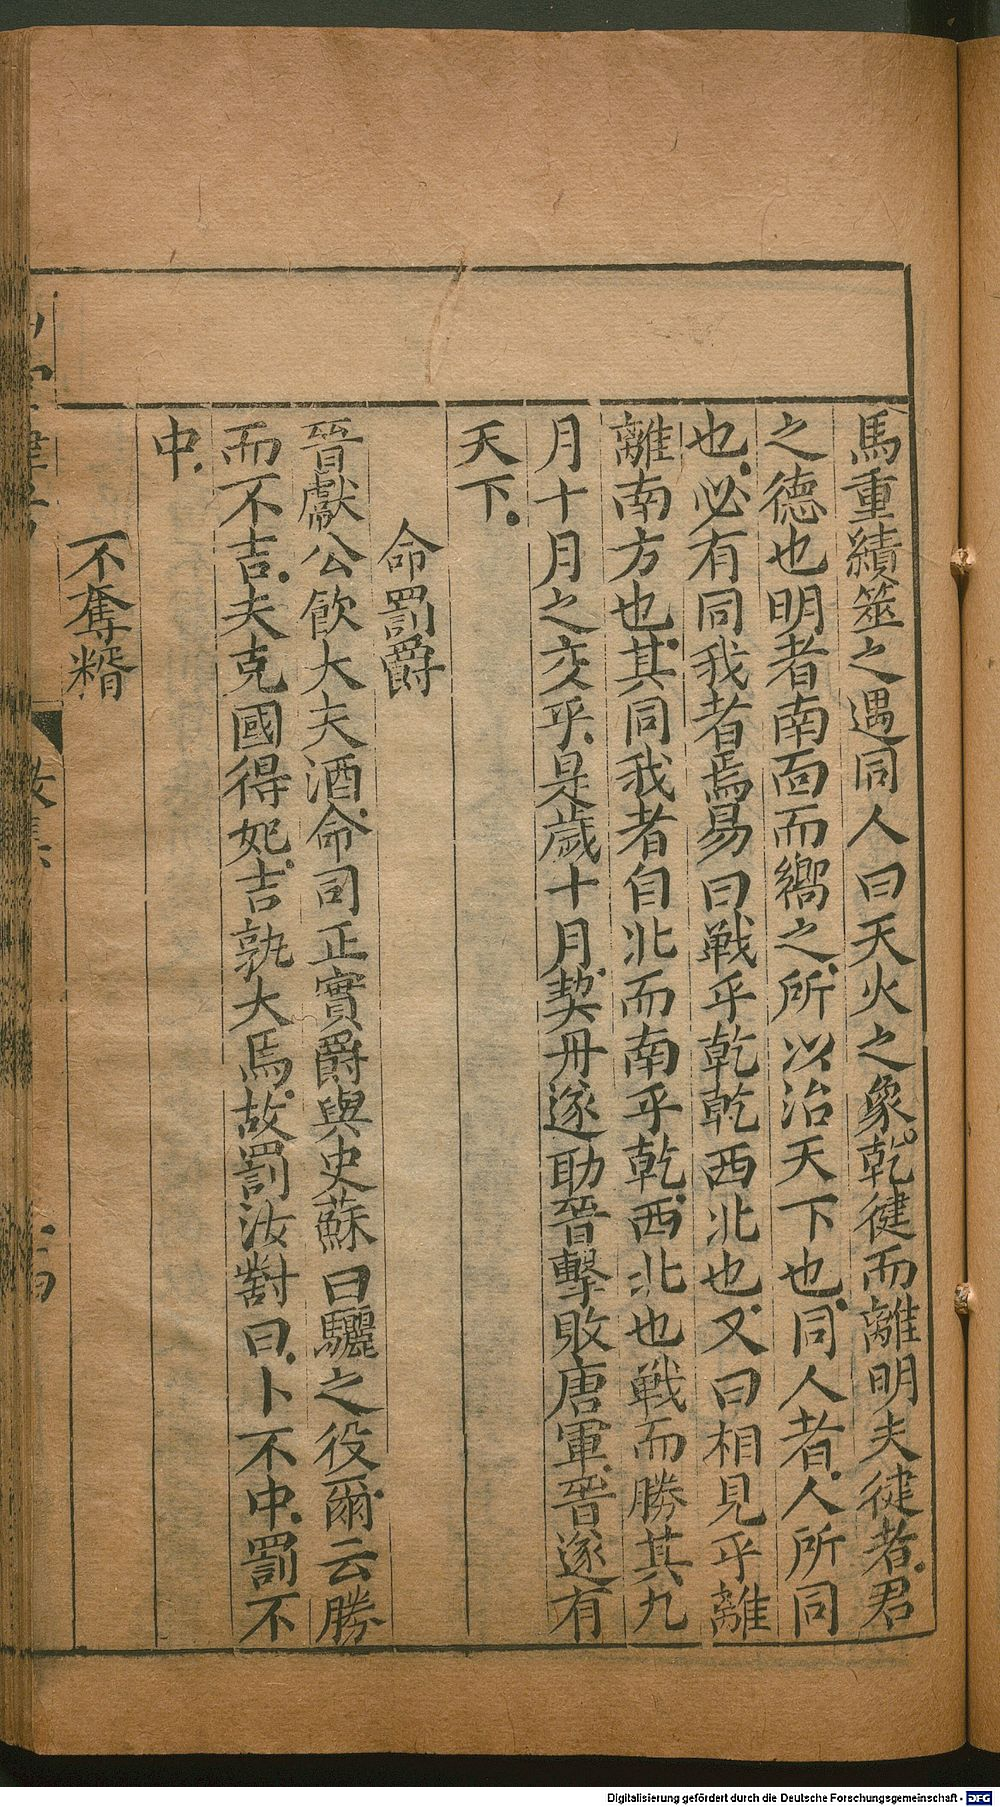 馬重績筮之遇同人曰天火之象乾健而離明夫健者君
之德也明者南面而嚮之所以治天下也同人者人所同
也必有同我者焉易曰戰乎乾乾西北也又曰相見乎離
離南方也其同我者自北而南乎乾西北也戰而勝其九
月十月之交乎是歲十月契丹遂助晉擊敗唐軍晉遂有
天下
命罰爵
晉獻公飲大夫酒命司正實爵與史蘇曰驪之役爾云勝
而不吉夫克國得妃吉孰大焉故罰汝對曰卜不中罰不
中
不奪糈
Digitalisierung gefördert durch die Deutsche Forschungsgemeinschaft - DFG